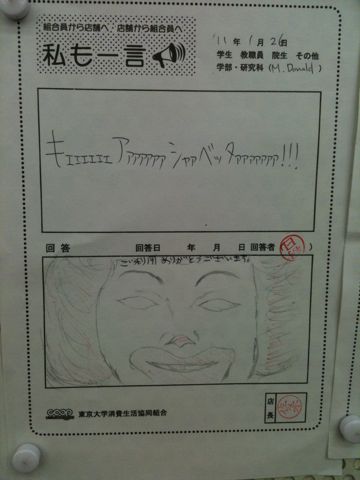 組合員から店舗へ・店舗から組合員へ
私も一言
'11 年 1 月 26 日
学生 教職員 院生 その他
学部・研究科 (M.Donald)
キェェェェェェアァァァァァァシャァベッタァァァァァァァ!!!
回答 回答日 年 月 日 回答者 ( )
ご利用ありがとうございます。
coop 東京大学消費生活協同組合
店長